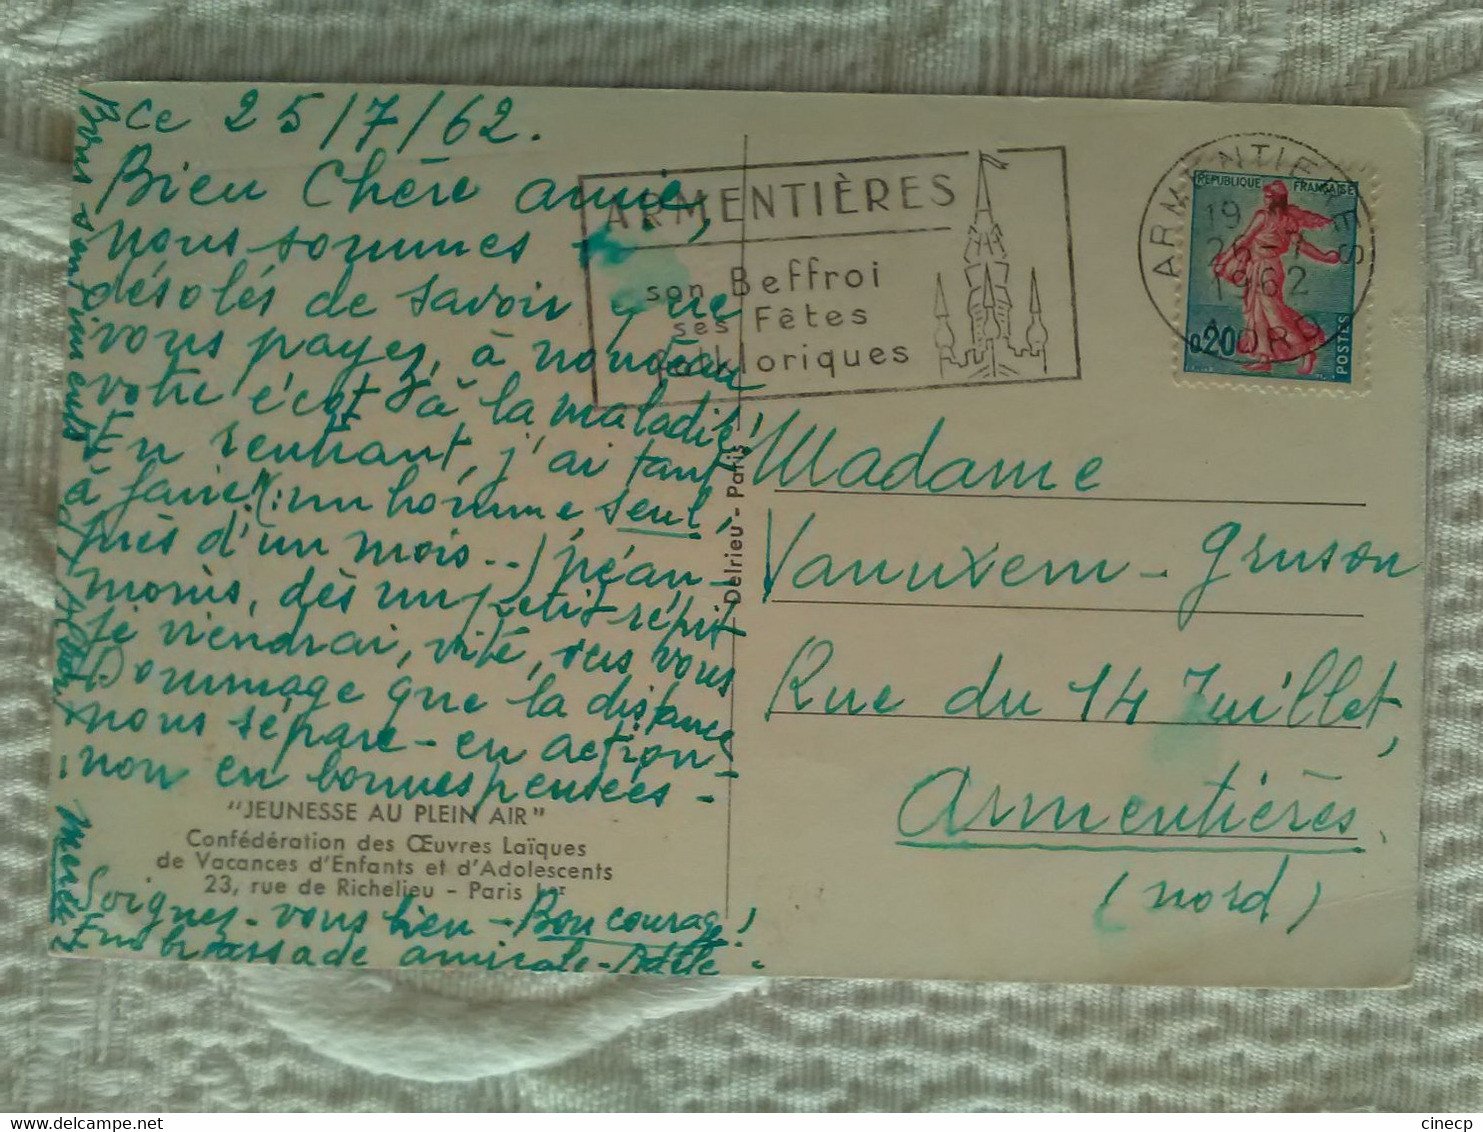 ce 25/7/62.
Bien Chère amie,
nous sommes
désolés de savoir que
vous payez, à nouveau
votre écot à la maladie!
En rentrant, j'ai tant
à faire! (: un homme seul,
près d'un mois..) néan-
moins, dès un petit répit
je viendrai, vite, vers vous
Dommage que la distance
nous sépare - en action -
non en bonnes pensées -
"JEUNESSE AU PLEIN AIR"
Confédération des Œuvres Laïques
de Vacances d'Enfants et d'Adolescents
23, rue de Richelieu - Paris 1er
Soignez-vous bien - Bon courage!
Embrassade amicale -
Bons sentiments d'Albert,
Merci
Delrieu - Paris
ARMENTIÈRES
son Beffroi
ses Fêtes
folkloriques
ARMENTIERES
19
26-7
1962
NORD
REPUBLIQUE FRANÇAISE
0,20
POSTES
Madame
Vanuxem - Gruson
Rue du 14 Juillet,
Armentières.
(Nord)
cinecp